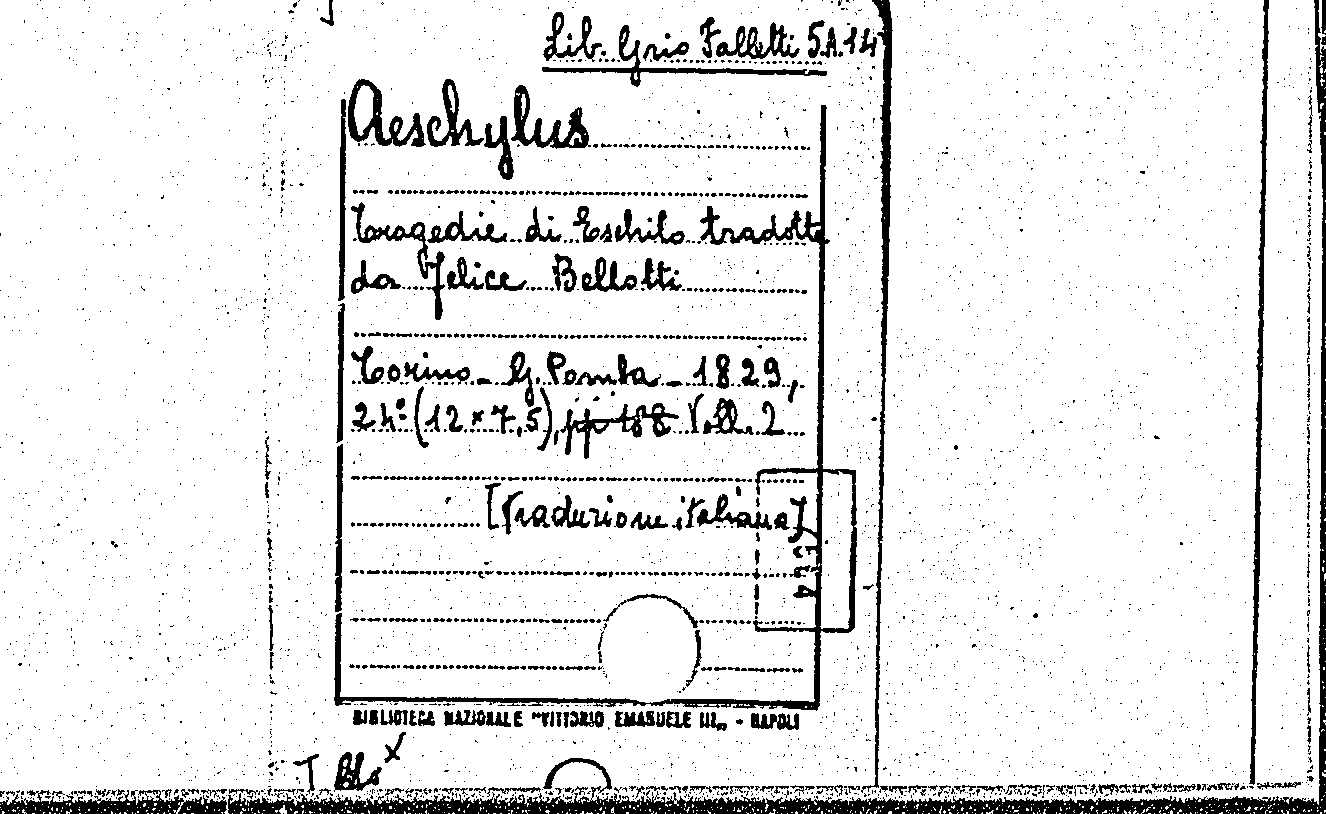 Lib. Grio Falletti 5.A.14
Aeschylus
Tragedie di Eschilo tradotte
da Felice Bellotti
Torino - G. Pomba - 1829,
24º (12 × 7,5), pp 188 Voll. 2
[Traduzione italiana]
BIBLIOTECA NAZIONALE "VITTORIO EMANUELE III„ - NAPOLI